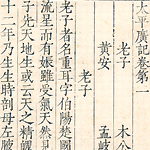 太平廣記卷第一
老子 木公
黃安 孟岐
老子
老子者名重耳字伯陽楚國
流星而有娠雖受氣天然見
子先天地生或云天之精
十二年乃生生時剖母左腋